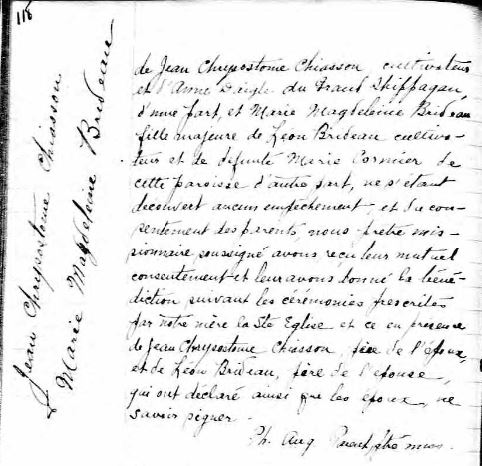 118
Jean Chrysostome Chiasson
&
Marie Magdeleine Brideau
de Jean Chrysostome Chiasson, cultivateur
et d'Anne Daigle du Grand Shippagan,
d'une part, et Marie Magdeleine Brideau
fille majeure de Léon Brideau cultiva-
teur et de défunte Marie Cormier de
cette paroisse d'autre part, ne s'étant
decouvert aucun empêchement, et du con-
sentement des parents, nous prêtre mis-
sionnaire soussigné avons reçu leur mutuel
consentement et leur avons donné la béné-
diction suivant les cérémonies prescrites
par notre mère la Ste Eglise et ce en présence
de Jean Chrysostome Chiasson, père de l'époux,
et de Léon Brideau, père de l'épouse,
qui ont déclaré ainsi que les époux, ne
savoir signer.
Ph. Aug. Parent, ptre miss.